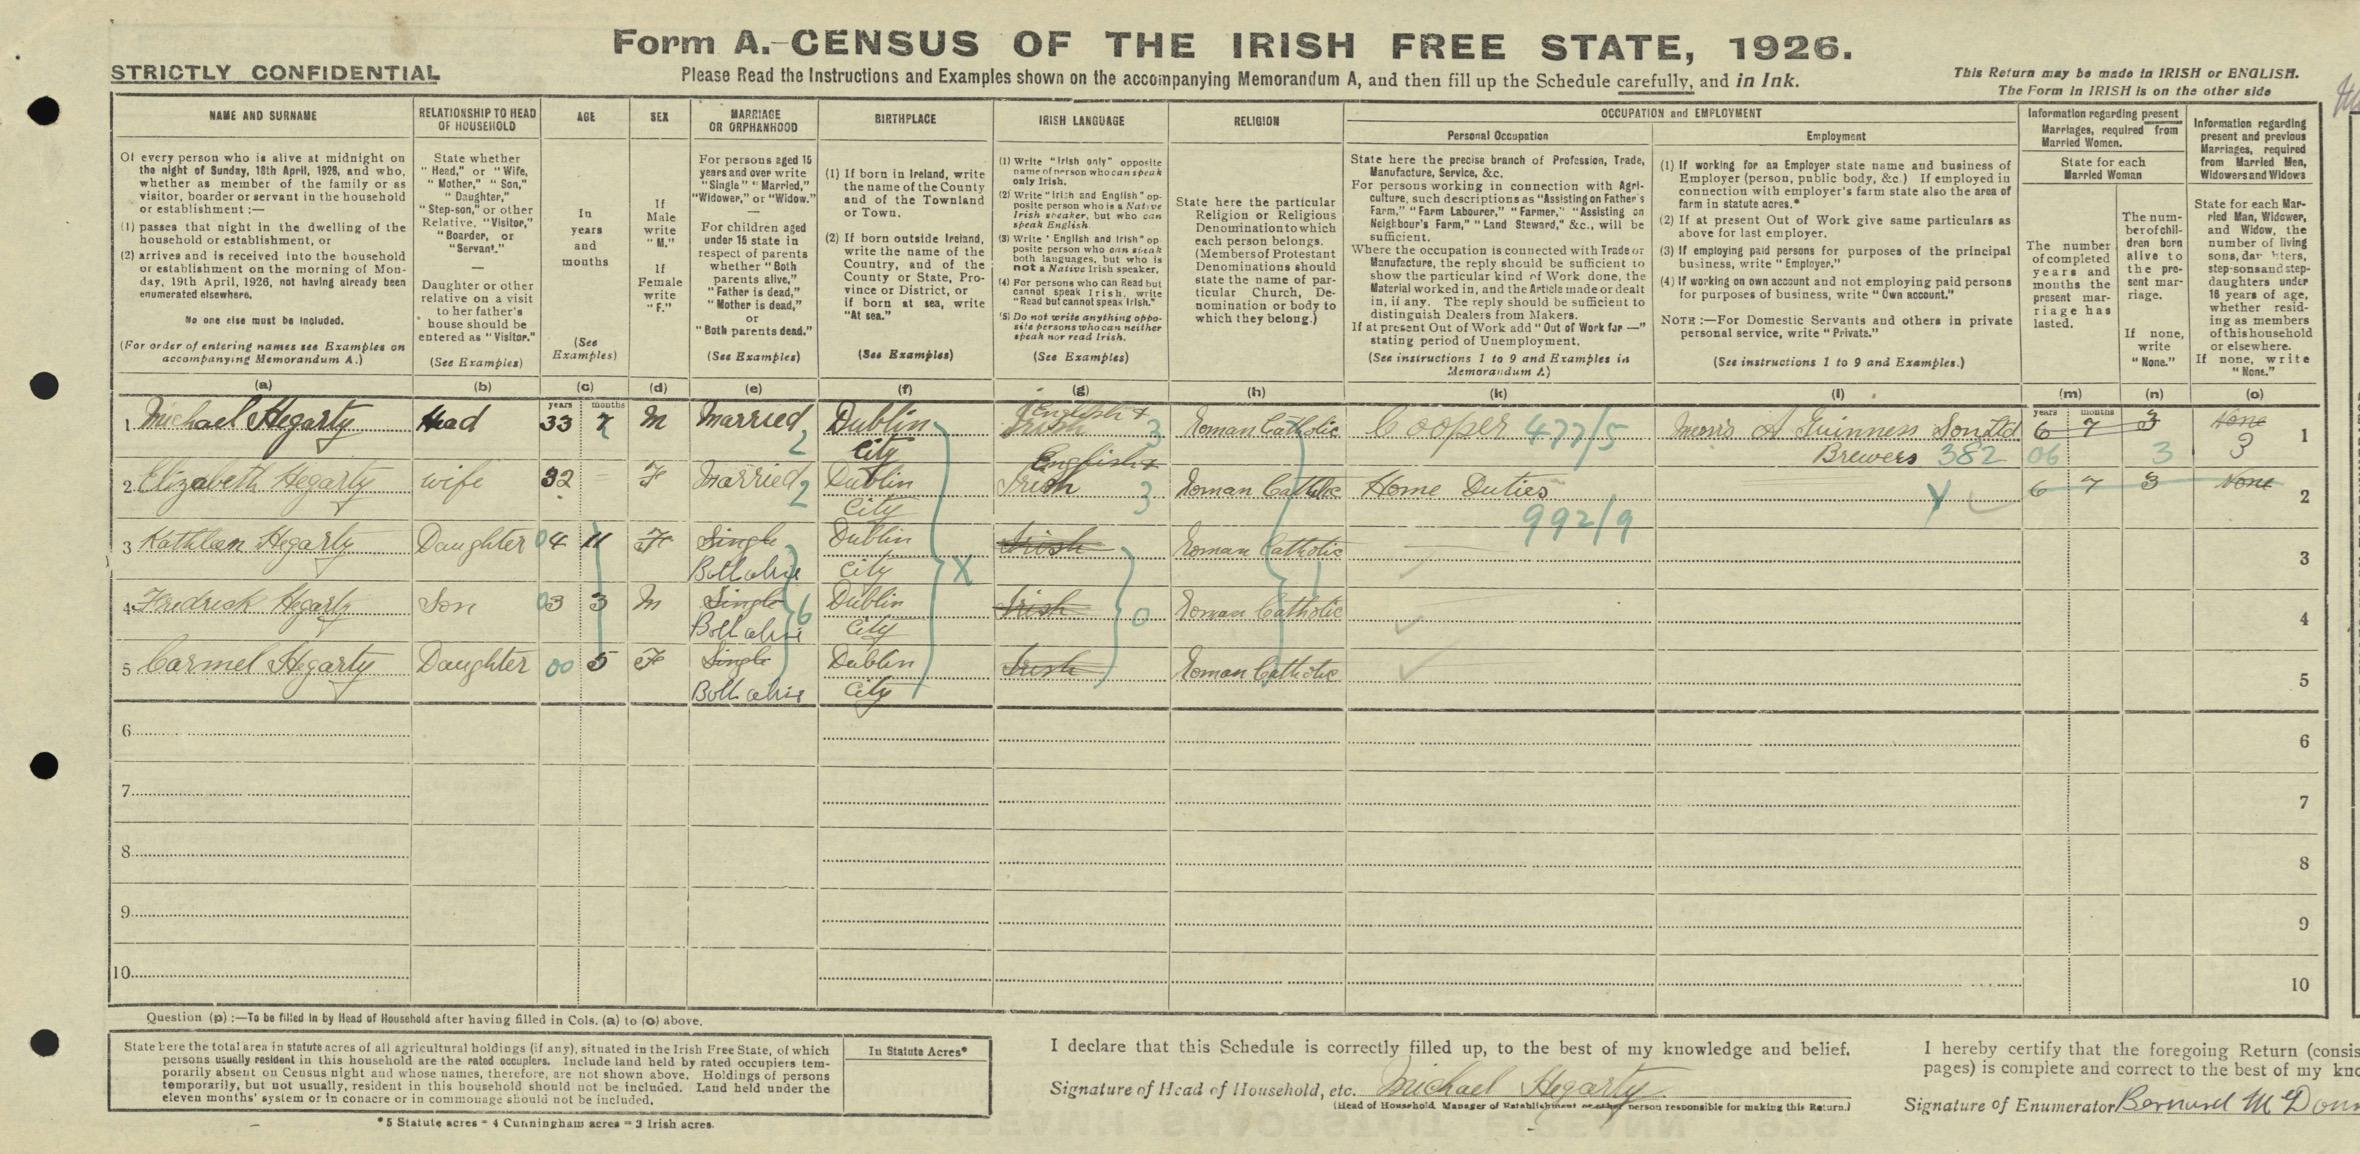 Form A.-CENSUS OF THE IRISH FREE STATE, 1926.
STRICTLY CONFIDENTIAL
Please Read the Instructions and Examples shown on the accompanying Memorandum A, and then fill up the Schedule carefully, and in Ink.
This Return may be made in IRISH or ENGLISH.
The Form in IRISH is on the other side
NAME AND SURNAME
Of every person who is alive at midnight on
the night of Sunday, 18th April, 1926, and who,
whether as member of the family or as
visitor, boarder or servant in the household
or establishment :—
(1) passes that night in the dwelling of the
household or establishment, or
(2) arrives and is received into the household
or establishment on the morning of Mon-
day, 19th April, 1926, not having already been
enumerated elsewhere.
No one else must be included.
(For order of entering names see Examples on
accompanying Memorandum A.)
(a)
RELATIONSHIP TO HEAD
OF HOUSEHOLD
State whether
"Head," or "Wife,
"Mother," "Son,"
"Daughter,"
"Step-son," or other
Relative, "Visitor,"
"Boarder, or
"Servant."
—
Daughter or other
relative on a visit
to her father's
house should be
entered as "Visitor."
(See Examples)
(b)
AGE
In
years
and
months
(See
Examples)
(c)
SEX
If
Male
write
"M."
If
Female
write
"F."
(d)
MARRIAGE
OR ORPHANHOOD
For persons aged 15
years and over write
"Single" "Married,"
"Widower," or "Widow."
—
For children aged
under 15 state in
respect of parents
whether "Both
parents alive,"
"Father is dead,"
"Mother is dead,"
or
"Both parents dead."
(See Examples)
(e)
BIRTHPLACE
(1) If born in Ireland, write
the name of the County
and of the Townland
or Town.
(2) If born outside Ireland,
write the name of the
Country, and of the
County or State, Pro-
vince or District, or
if born at sea, write
"At sea."
(See Examples)
(f)
IRISH LANGUAGE
(1) Write "Irish only" opposite
name of person who can speak
only Irish.
(2) Write "Irish and English" op-
posite person who is a Native
Irish speaker, but who can
speak English.
(3) Write "English and Irish" op-
posite person who can speak
both languages, but who is
not a Native Irish speaker.
(4) For persons who can Read but
cannot speak Irish, write
"Read but cannot speak Irish."
(5) Do not write anything oppo-
site persons who can neither
speak nor read Irish.
(See Examples)
(g)
RELIGION
State here the particular
Religion or Religious
Denomination to which
each person belongs.
(Members of Protestant
Denominations should
state the name of par-
ticular Church, De-
nomination or body to
which they belong.)
(h)
OCCUPATION and EMPLOYMENT
Personal Occupation
State here the precise branch of Profession, Trade,
Manufacture, Service, &c.
For persons working in connection with Agri-
culture, such descriptions as "Assisting on Father's
Farm," "Farm Labourer," "Farmer," "Assisting on
Neighbour's Farm," "Land Steward," &c., will be
sufficient.
Where the occupation is connected with Trade or
Manufacture, the reply should be sufficient to
show the particular kind of Work done, the
Material worked in, and the Article made or dealt
in, if any. The reply should be sufficient to
distinguish Dealers from Makers.
If at present Out of Work add "Out of Work for —"
stating period of Unemployment.
(See instructions 1 to 9 and Examples in
Memorandum A)
(k)
Employment
(1) If working for an Employer state name and business of
Employer (person, public body, &c.) If employed in
connection with employer's farm state also the area of
farm in statute acres.*
(2) If at present Out of Work give same particulars as
above for last employer.
(3) If employing paid persons for purposes of the principal
business, write "Employer."
(4) If working on own account and not employing paid persons
for purposes of business, write "Own account."
NOTE :—For Domestic Servants and others in private
personal service, write "Private."
(See instructions 1 to 9 and Examples.)
(l)
Information regarding present
Marriages, required from
Married Women.
State for each
Married Woman
The number
of completed
years and
months the
present mar-
riage has
lasted.
(m)
The num-
ber of chil-
dren born
alive to
the pre-
sent mar-
riage.
If none,
write
"None."
(n)
Information regarding
present and previous
Marriages, required
from Married Men,
Widowers and Widows
State for each Mar-
ried Man, Widower,
and Widow, the
number of living
sons, daughters,
step-sons and step-
daughters under
16 years of age,
whether resid-
ing as members
of this household
or elsewhere.
If none, write
"None."
(o)
years months
years months
1 Michael Hegarty Head 33 7 M Married 2 Dublin City English + Irish 3 Roman Catholic Cooper 477/5 Messrs A Guinness Son Ltd Brewers 382 6 7 3 None 1
06 3 3
2 Elizabeth Hegarty wife 32 F Married 2 Dublin City English + Irish 3 Roman Catholic Home Duties 992/9 Y 6 7 3 None 2
3 Kathleen Hegarty Daughter 04 11 F Single Both alive Dublin City Irish Roman Catholic 3
4 Fredrick Hegarty Son 03 3 M Single Both alive 6 Dublin City X Irish 0 Roman Catholic 4
5 Carmel Hegarty Daughter 00 5 F Single Both alive Dublin City Irish Roman Catholic 5
6 6
7 7
8 8
9 9
10 10
Question (p) :—To be filled in by Head of Household after having filled in Cols. (a) to (o) above.
State here the total area in statute acres of all agricultural holdings (if any), situated in the Irish Free State, of which
persons usually resident in this household are the rated occupiers. Include land held by rated occupiers tem-
porarily absent on Census night and whose names, therefore, are not shown above. Holdings of persons
temporarily, but not usually, resident in this household should not be included. Land held under the
eleven months' system or in conacre or in commonage should not be included.
In Statute Acres*
*5 Statute acres = 4 Cunningham acres = 3 Irish acres.
I declare that this Schedule is correctly filled up, to the best of my knowledge and belief.
Signature of Head of Household, etc. Michael Hegarty
(Head of Household, Manager of Establishment or other person responsible for making this Return.)
I hereby certify that the foregoing Return (consis
pages) is complete and correct to the best of my kno
Signature of Enumerator Bernard McDonn